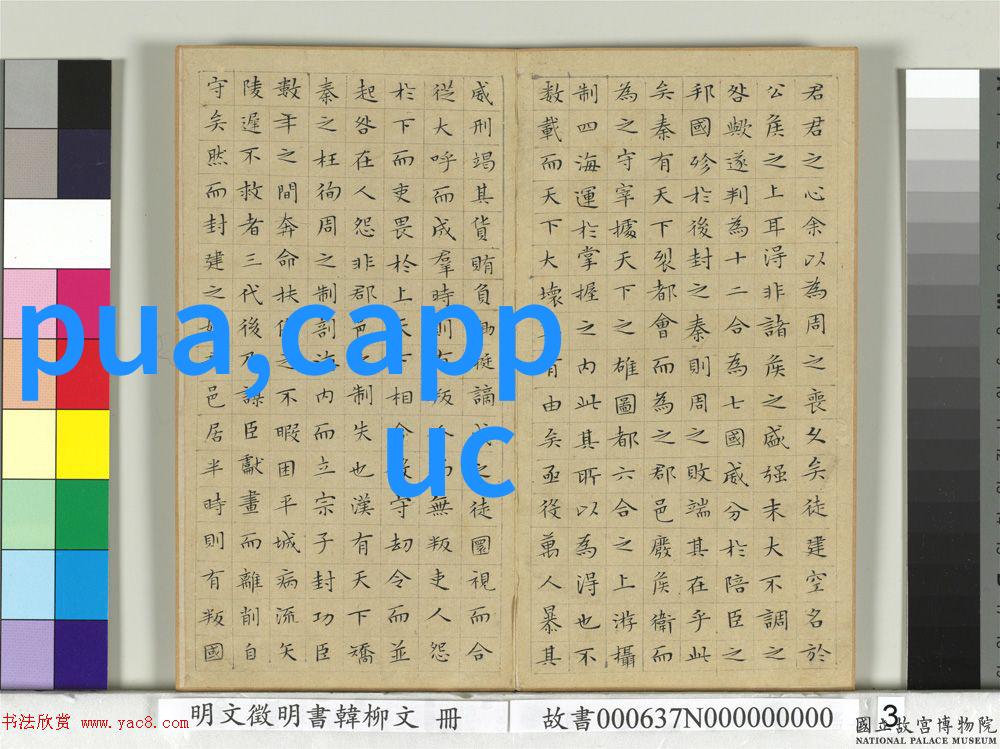 君君之心余以為周之喪久矣徒建空名於
公侯之上耳得非諸侯之盛强末大不調之
咎歟遂判為十二合為七國威分於陪臣之
邦國殄於後封之秦則周之敗端其在乎此
矣秦有天下裂都會而為之郡邑廢侯衛而
為之守宰據天下之雄圖都六合之上游攝
制四海運於掌握之內此其所以為得也不
數載而天下大壞有由矣亟役萬人暴其
威刑竭其貨賄負梃謫之徒圜視而合
從大呼而成羣時則叛無叛吏人怨
於下而吏畏於上天相守劫令而並
起咎在人怨非郡邑之制失也漢有天下矯
秦之枉徇周之制剖內而立宗子封功臣
數年之間奔命扶之不暇困平城病流矢
陵遲不救者三代後謀臣獻畫而離削自
守矣然而封建之邑居半時則有叛國
pua,capp
uc
明文徵明書韓柳文 冊
故書000637N000000000
3
書法欣赏 www.yac8.com
國立故宮博物院
NATIONAL PALACE MUSEUM